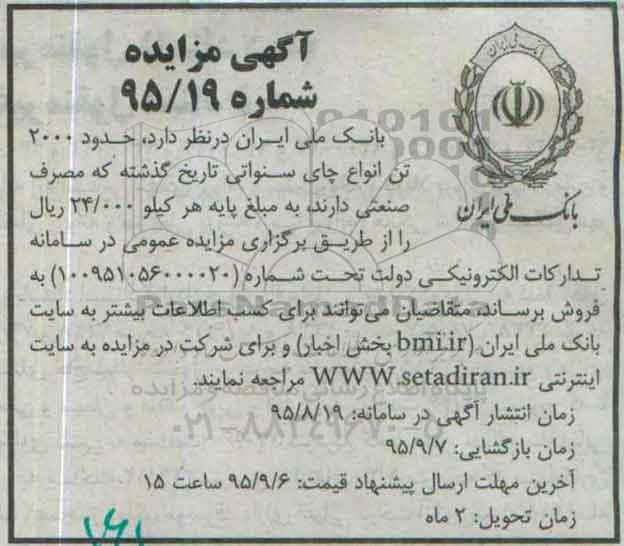 آگهی مزایده
شماره ۹۵/۱۹
بانک ملی ایران
بانک ملی ایران درنظر دارد، حدود ۲۰۰۰
تن انواع چای سنواتی تاریخ گذشته که مصرف
صنعتی دارند، به مبلغ پایه هر کیلو ۲۴/۰۰۰ ریال
را از طریق برگزاری مزایده عمومی در سامانه
تدارکات الکترونیکی دولت تحت شماره (۱۰۰۹۵۱۰۵۶۰۰۰۰۲۰) به
فروش برساند، متقاضیان می‌توانند برای کسب اطلاعات بیشتر به سایت
بانک ملی ایران (bmi.ir بخش اخبار) و برای شرکت در مزایده به سایت
اینترنتی WWW.setadiran.ir مراجعه نمایند.
زمان انتشار آگهی در سامانه: ۹۵/۸/۱۹
زمان بازگشایی: ۹۵/۹/۷
آخرین مهلت ارسال پیشنهاد قیمت: ۹۵/۹/۶ ساعت ۱۵
زمان تحویل: ۲ ماه
ParsNamadData
پایگاه اطلاع رسانی مناقصه و مزایده